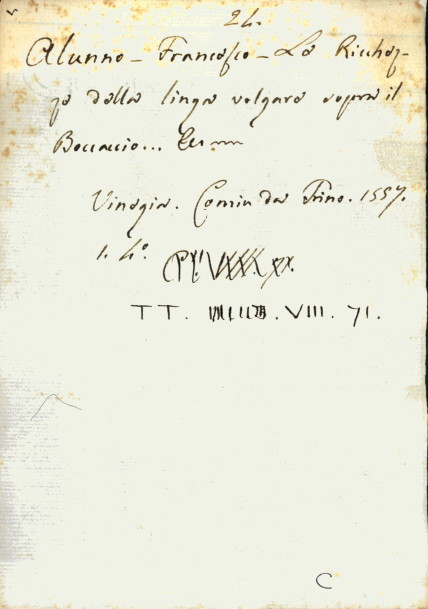 24.
Alunno - Francesco - Le Richez-
ze della linga volgare sopra il
Boccaccio...
Vinegia. Comin da Trino. 1557.
1. 4°.
TT. VIII. 71.
C